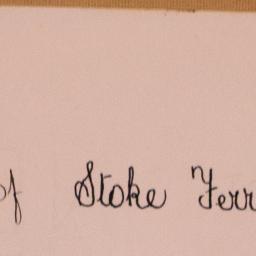 of Stoke Ferr